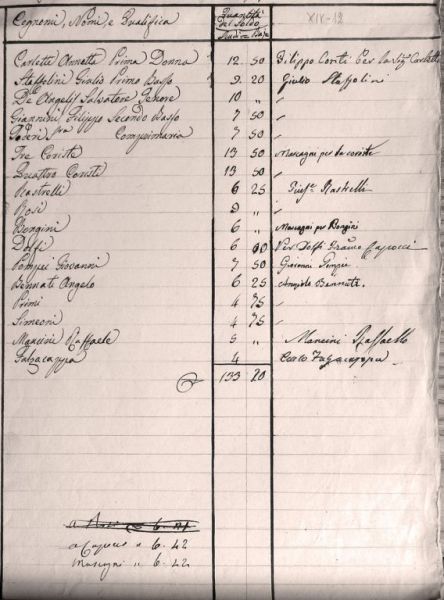 Cognomi, Nomi, e Qualifica Quantità del Soldo XIX-12
Scudi e Baj.
Carletti Annetta Prima Donna 12 50 Filippo Conti Per la Sig.ra Carletti
Staffolini Giulio Primo Basso 9 20 Giulio Staffolini
De Angelis Salvatore Tenore 10 "
Giannini Filippo Secondo Basso 7 50 "
Poderi Comprimaria 7 50 "
Tre Coriste 13 50 Mascagni per le coriste
Quattro Coristi 13 50 "
Rastrelli 6 25 Rastrelli
Rosi 9 " "
Bongini 6 " Mascagni per Bongini
Dolfi 6 60 Per Dolfi Franco Capocci
Pompei Giovanni 7 50 Giovanni Pompei
Bennati Angelo 6 25 Angelo Bennati.
Primi 4 75 "
Simeoni 4 75 "
Mancini Raffaele 5 " Mancini Raffaello
Fagacappa 4 Carlo Fagacappa
133 20
a Capocci " 6. 42
Mascagni " 6. 22